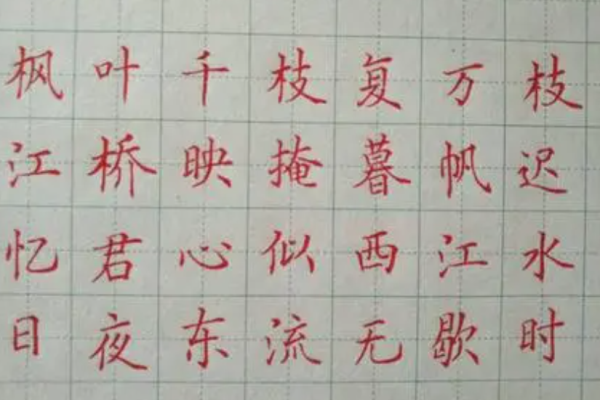 枫叶千枝复万枝
江桥映掩暮帆迟
忆君心似西江水
日夜东流无歇时